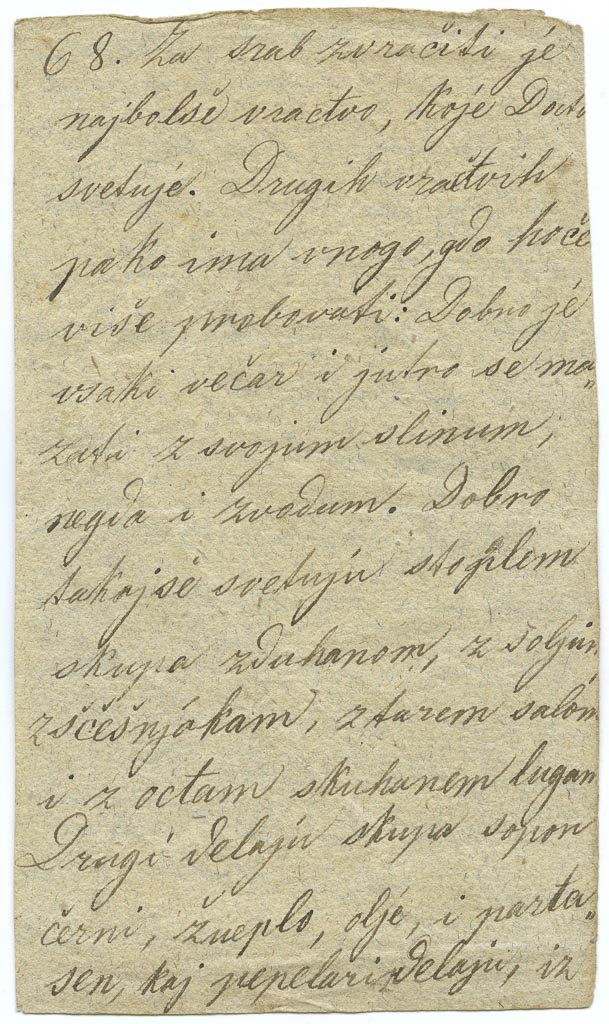 68. Za srab zvračiti je
najbolše vractvo, koje Docto
svetujé. Drugih vračtvih
pako ima vnogo, gdo hoče
više probovati: Dobro jé
vsaki večar i jutro se ma„
zati z svojum slinum,
negda i zvodum. Dobro
takajše svetujú stoplem
skupa zduhanom, z soljum
zščešnjókam, z tarem salóm
i z octam skuhanem lugam
Drugí delajú skupa sopon
černi, žueplo, oljé, i parta„
sen, kaj pepelari delaju, iz